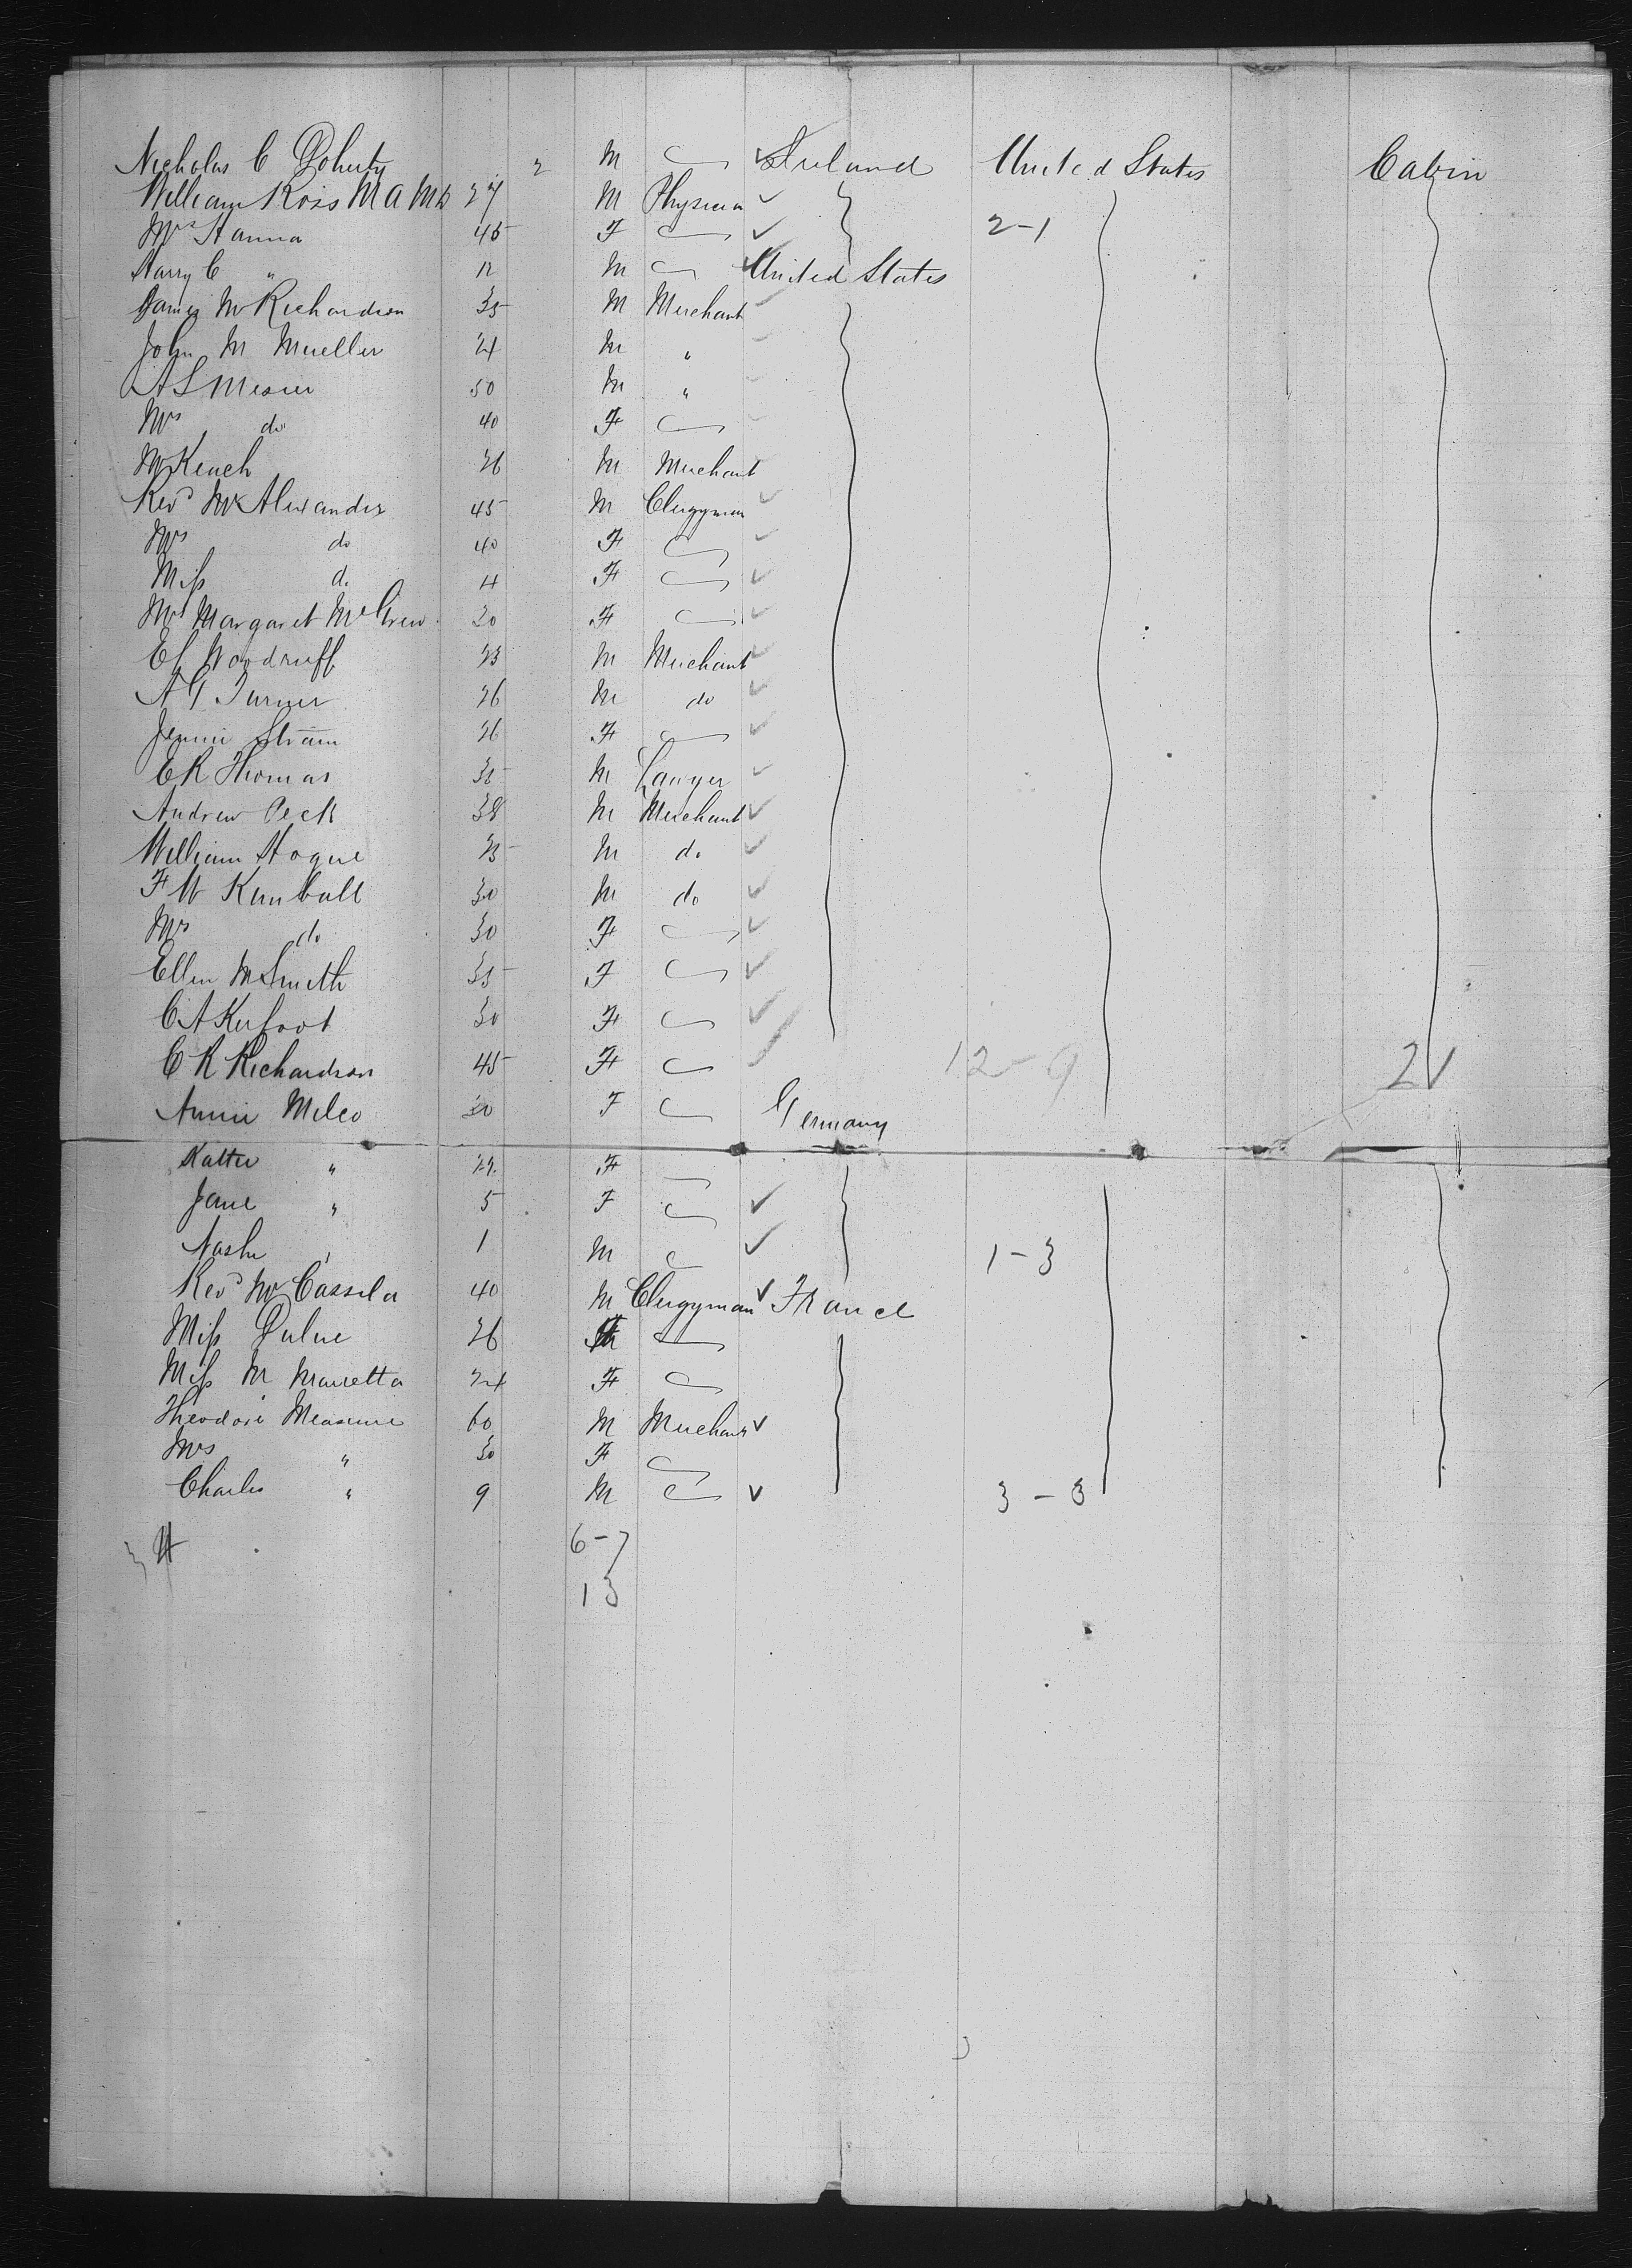 Nicholas C Doherty 2 M Ireland United States Cabin
William Ross M A MD 27 M Physician
Mrs Hanna 45 F 2-1
Harry C " 12 M United States
James W Richardson 35 M Merchant
John M Mueller 24 M "
A S Mesier 50 M "
Mrs do 40 F
M Keach 26 M Merchant
Revd Mr Alexander 45 M Clergyman
Mrs do 40 F
Miss do 4 F
Mrs Margaret McGrew 30 F
E C Woodruff 23 M Merchant
A G Turner 26 M do
Jennie Stramm 26 F
E R Thomas 35 M Lawyer
Andrew Peck 38 M Merchant
William Hogue 23 M do
F W Kimball 30 M do
Mrs do 30 F
Ellen M Smith 35 F
C A Kerfoot 30 F
C R Richardson 45 F 12-9 21
Annie Melco 30 F Germany
Kattie " 22 F
Jane " 5 F
Nashe " 1 M 1-3
Revd Mr Cassela 40 M Clergyman France
Miss Dulue 26
Miss M Marietta 24 F
Theodore Measure 60 M Merchant
Mrs " 30 F
Charles " 9 M 3-3
6-7
13